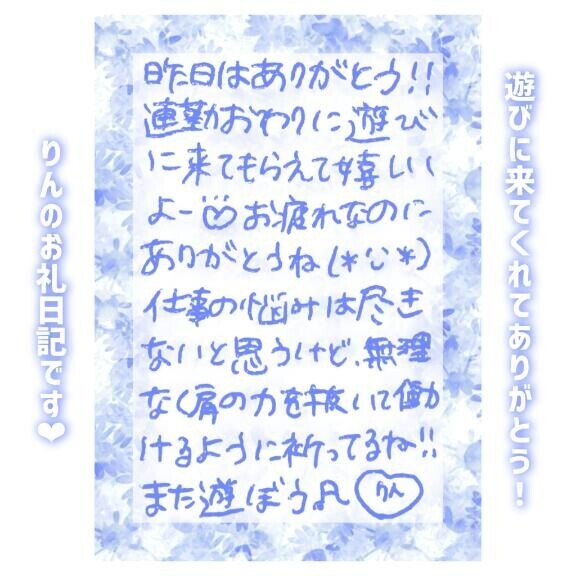 遊びに来てくれてありがとう!
昨日はありがとう!!
連勤おわりに遊び
に来てもらえて嬉しい
よー♡お疲れなのに
ありがとうね(*ᵕ*)
仕事の悩みは尽き
ないと思うけど、無理
なく肩の力を抜いて働
けるように祈ってるね!!
また遊ぼう♫
りん
りんのお礼日記です❤